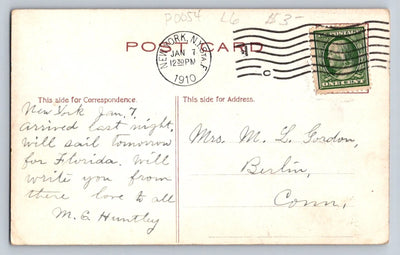 P0054 L6 153-
POST CARD
NEW YORK, N.Y. STA. F
JAN 7
12 30 PM
1910
C
POSTAGE
ONE CENT
This side for Correspondence.
This side for Address.
New York Jan. 7.
arrived last night,
will sail tomorrow
for Florida. Will
write you from
there love to all
M. G. Huntley
Mrs. M. L. Gordon,
Berlin,
Conn,